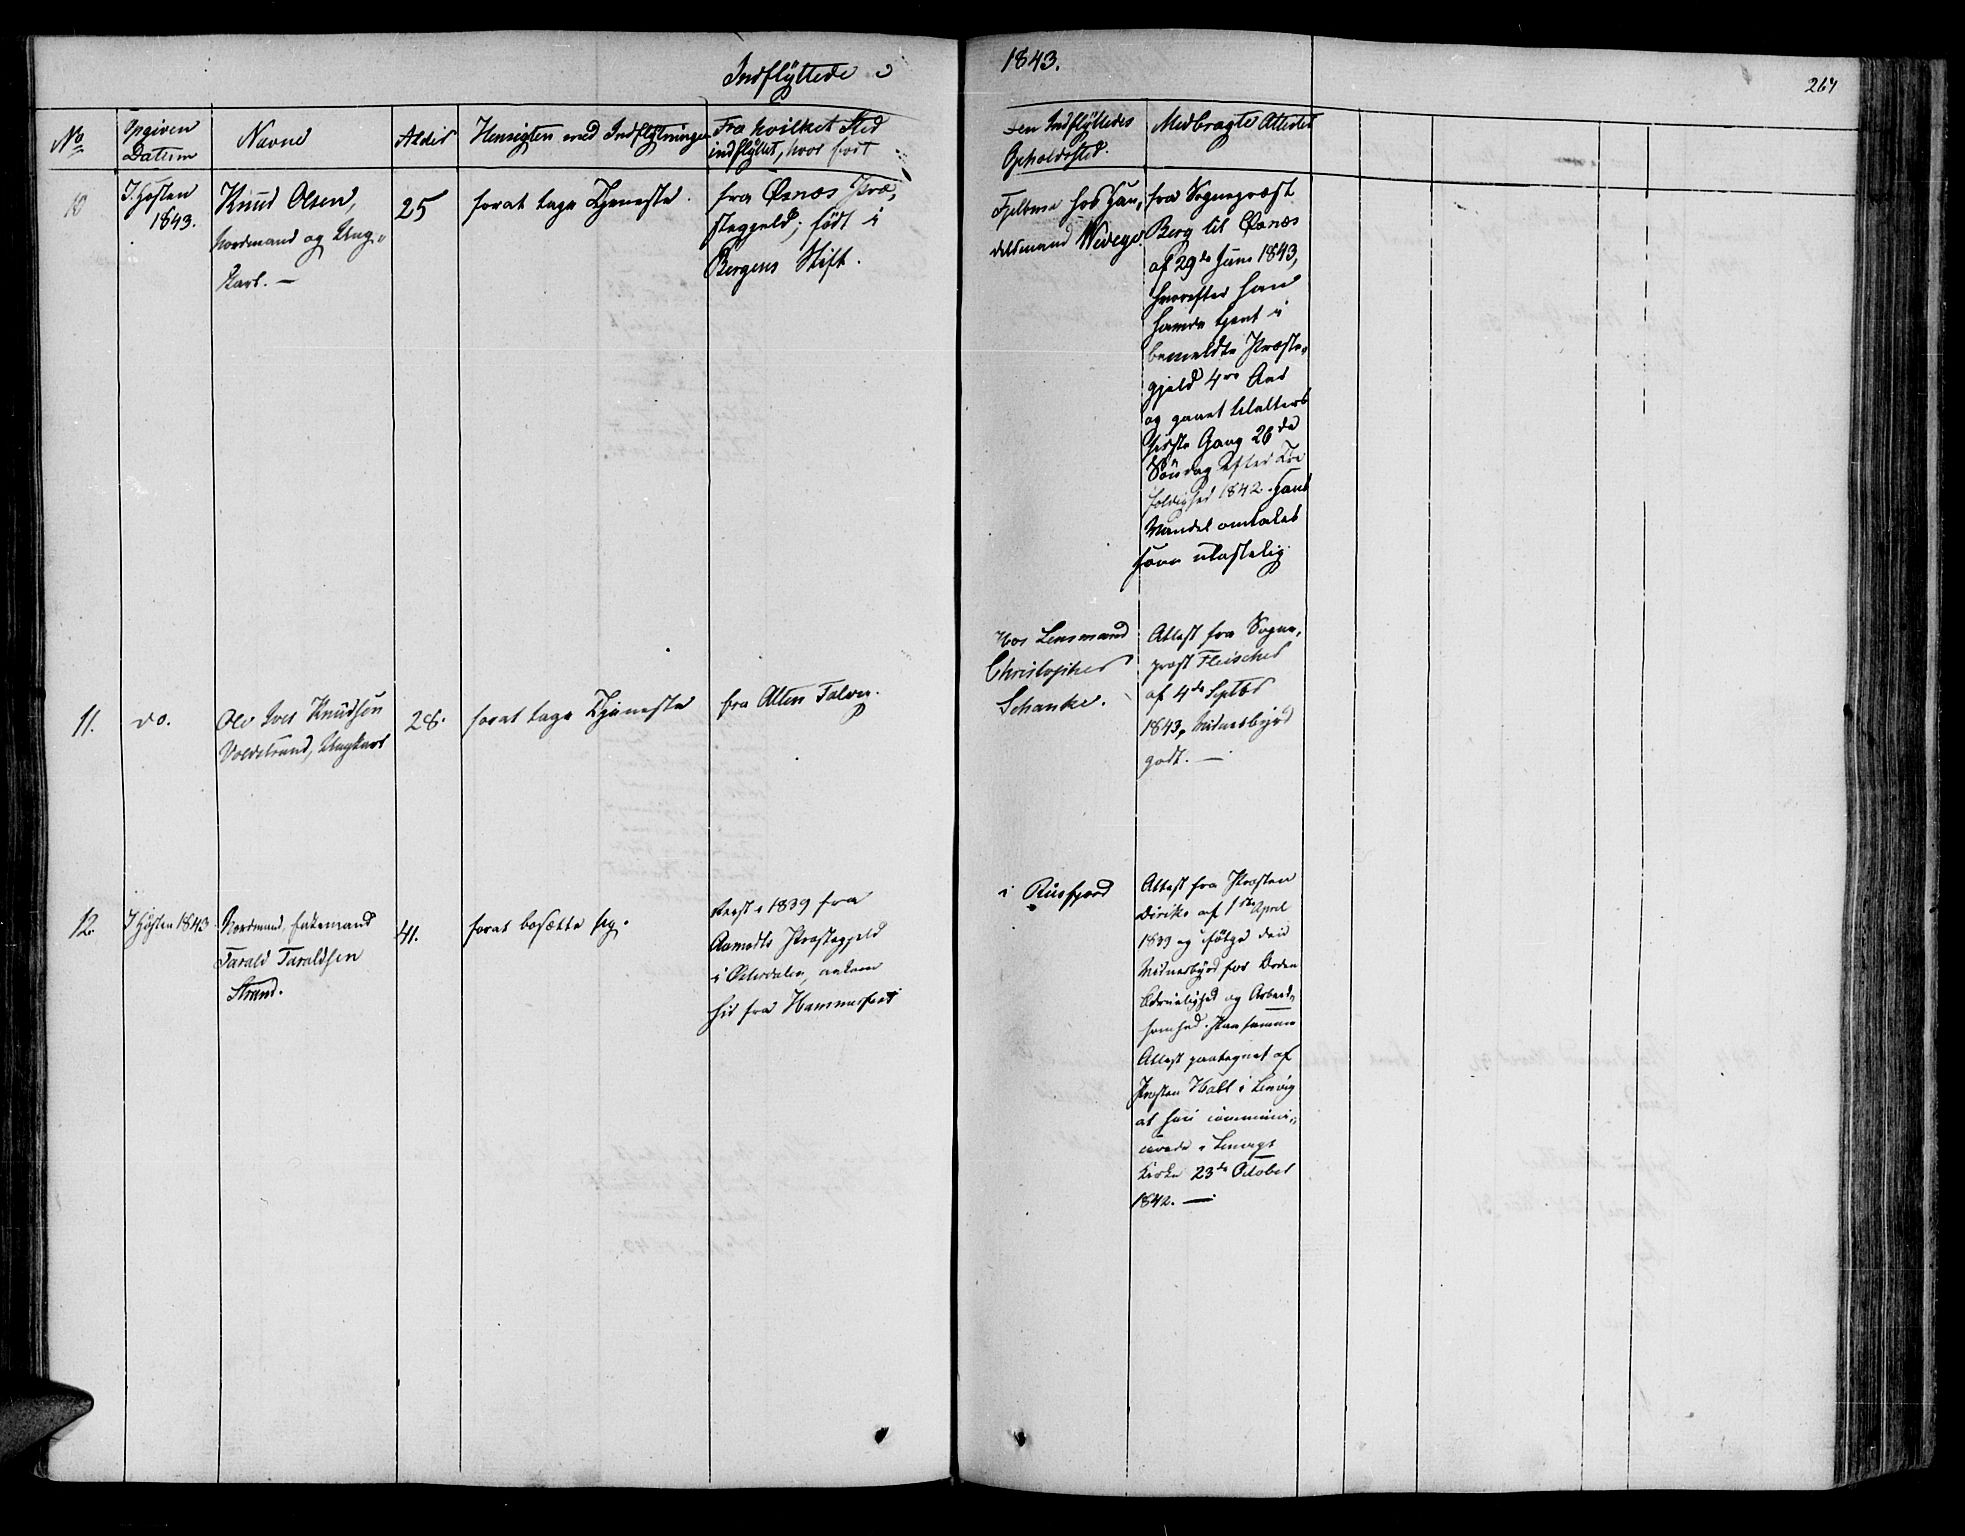 Indflyttede i
1843.
264
No
Opgiven
Datum
Navne
Alder
Hensigten med Indflytningen
Fra hvilket Sted
indflyttet, hvor født
Den Indflyttedes
Opholdssted.
Medbragte Attester
10
I Høsten
1843.
Knud Olsen,
Nordmand og Ung-
karl. —
25
forat tage Tjeneste.
fra Øxnæs Præ-
stegjeld; født i
Bergens Stift.
Fjeldma hos Han-
delsmand Wedege.
fra Sognepræst
Berg til Øxnæs
af 29de Juni 1843,
hvorefter han
havde tjent i
bemeldte Præste-
gjeld 4re Aar
og gaaet til Alters
sidste Gang 26de
Søndag efter Tre
foldighed 1842. Hans
Vandel omtales
som ulastelig.
11.
do.
Ole Iver Knudsen
Voldstrand, Ungkarl
28.
forat tage Tjeneste
fra Alten Talvig.
Hos Lensmand
Christopher
Schanke.
Attest fra Sogne-
præst Fleischer
af 4de Septbr
1843, Vidnesbyrd
godt. —
12.
I Høsten 1843
Nordmand, Enkemand
Tarald Taraldsen
Strand.
41.
forat bosætte sig.
Reist i 1839 fra
Aamodts Præstegjeld
i Østerdalen, ankom
hid fra Hammerfest
i Russfjord
Attest fra Præsten
Diriks af 1ste April
1839 og ifølge den
Vidnesbyrd for Orden
Ædruelighed og Arbeid-
somhed. Paa samme
Attest paategnet af
Præsten Hall i Lenvig
at han communi-
cerede i Lenvigs
Kirke 23de October
1842. —